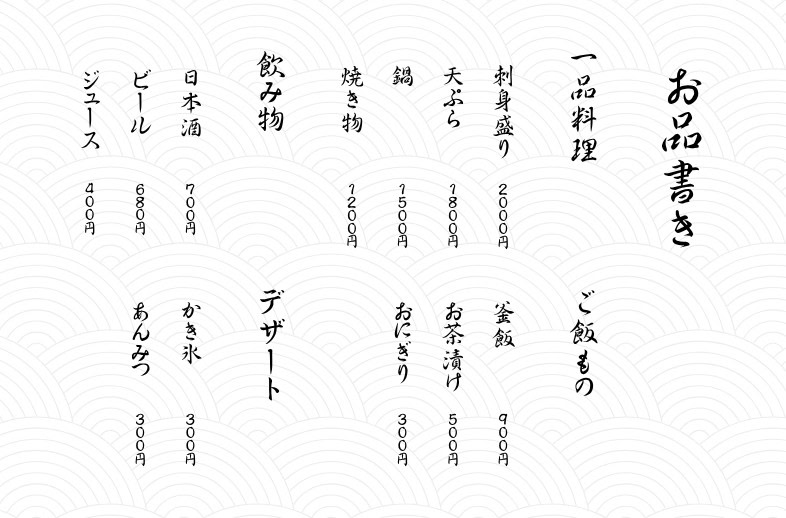 お品書き
一品料理
刺身盛り 2000円
天ぷら 1800円
鍋 1500円
焼き物 1200円
飲み物
日本酒 700円
ビール 680円
ジュース 400円
ご飯もの
釜飯 900円
お茶漬け 500円
おにぎり 300円
デザート
かき氷 300円
あんみつ 300円